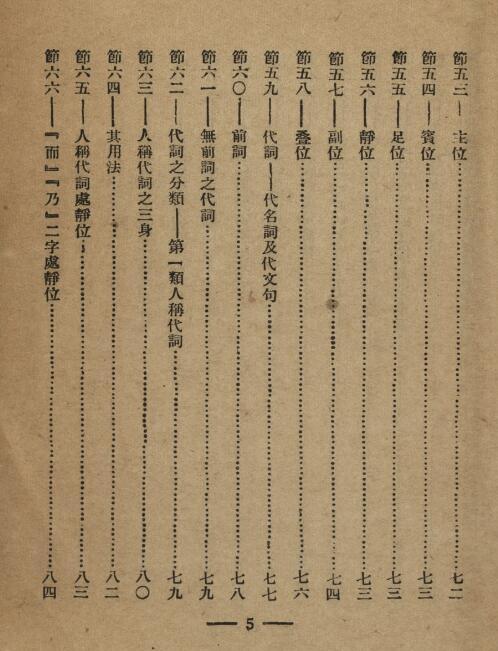 節五三—主位……七二
節五四—賓位……七三
節五五—足位……七三
節五六—靜位……七三
節五七—副位……七四
節五八—叠位……七六
節五九—代詞—代名詞及代文句……七七
節六〇—前詞……七八
節六一—無前詞之代詞……七九
節六二—代詞之分類—第一類人稱代詞……七九
節六三—人稱代詞之三身……八〇
節六四—其用法……八二
節六五—人稱代詞處靜位……八三
節六六—『而』『乃』二字處靜位……八四
— 5 —